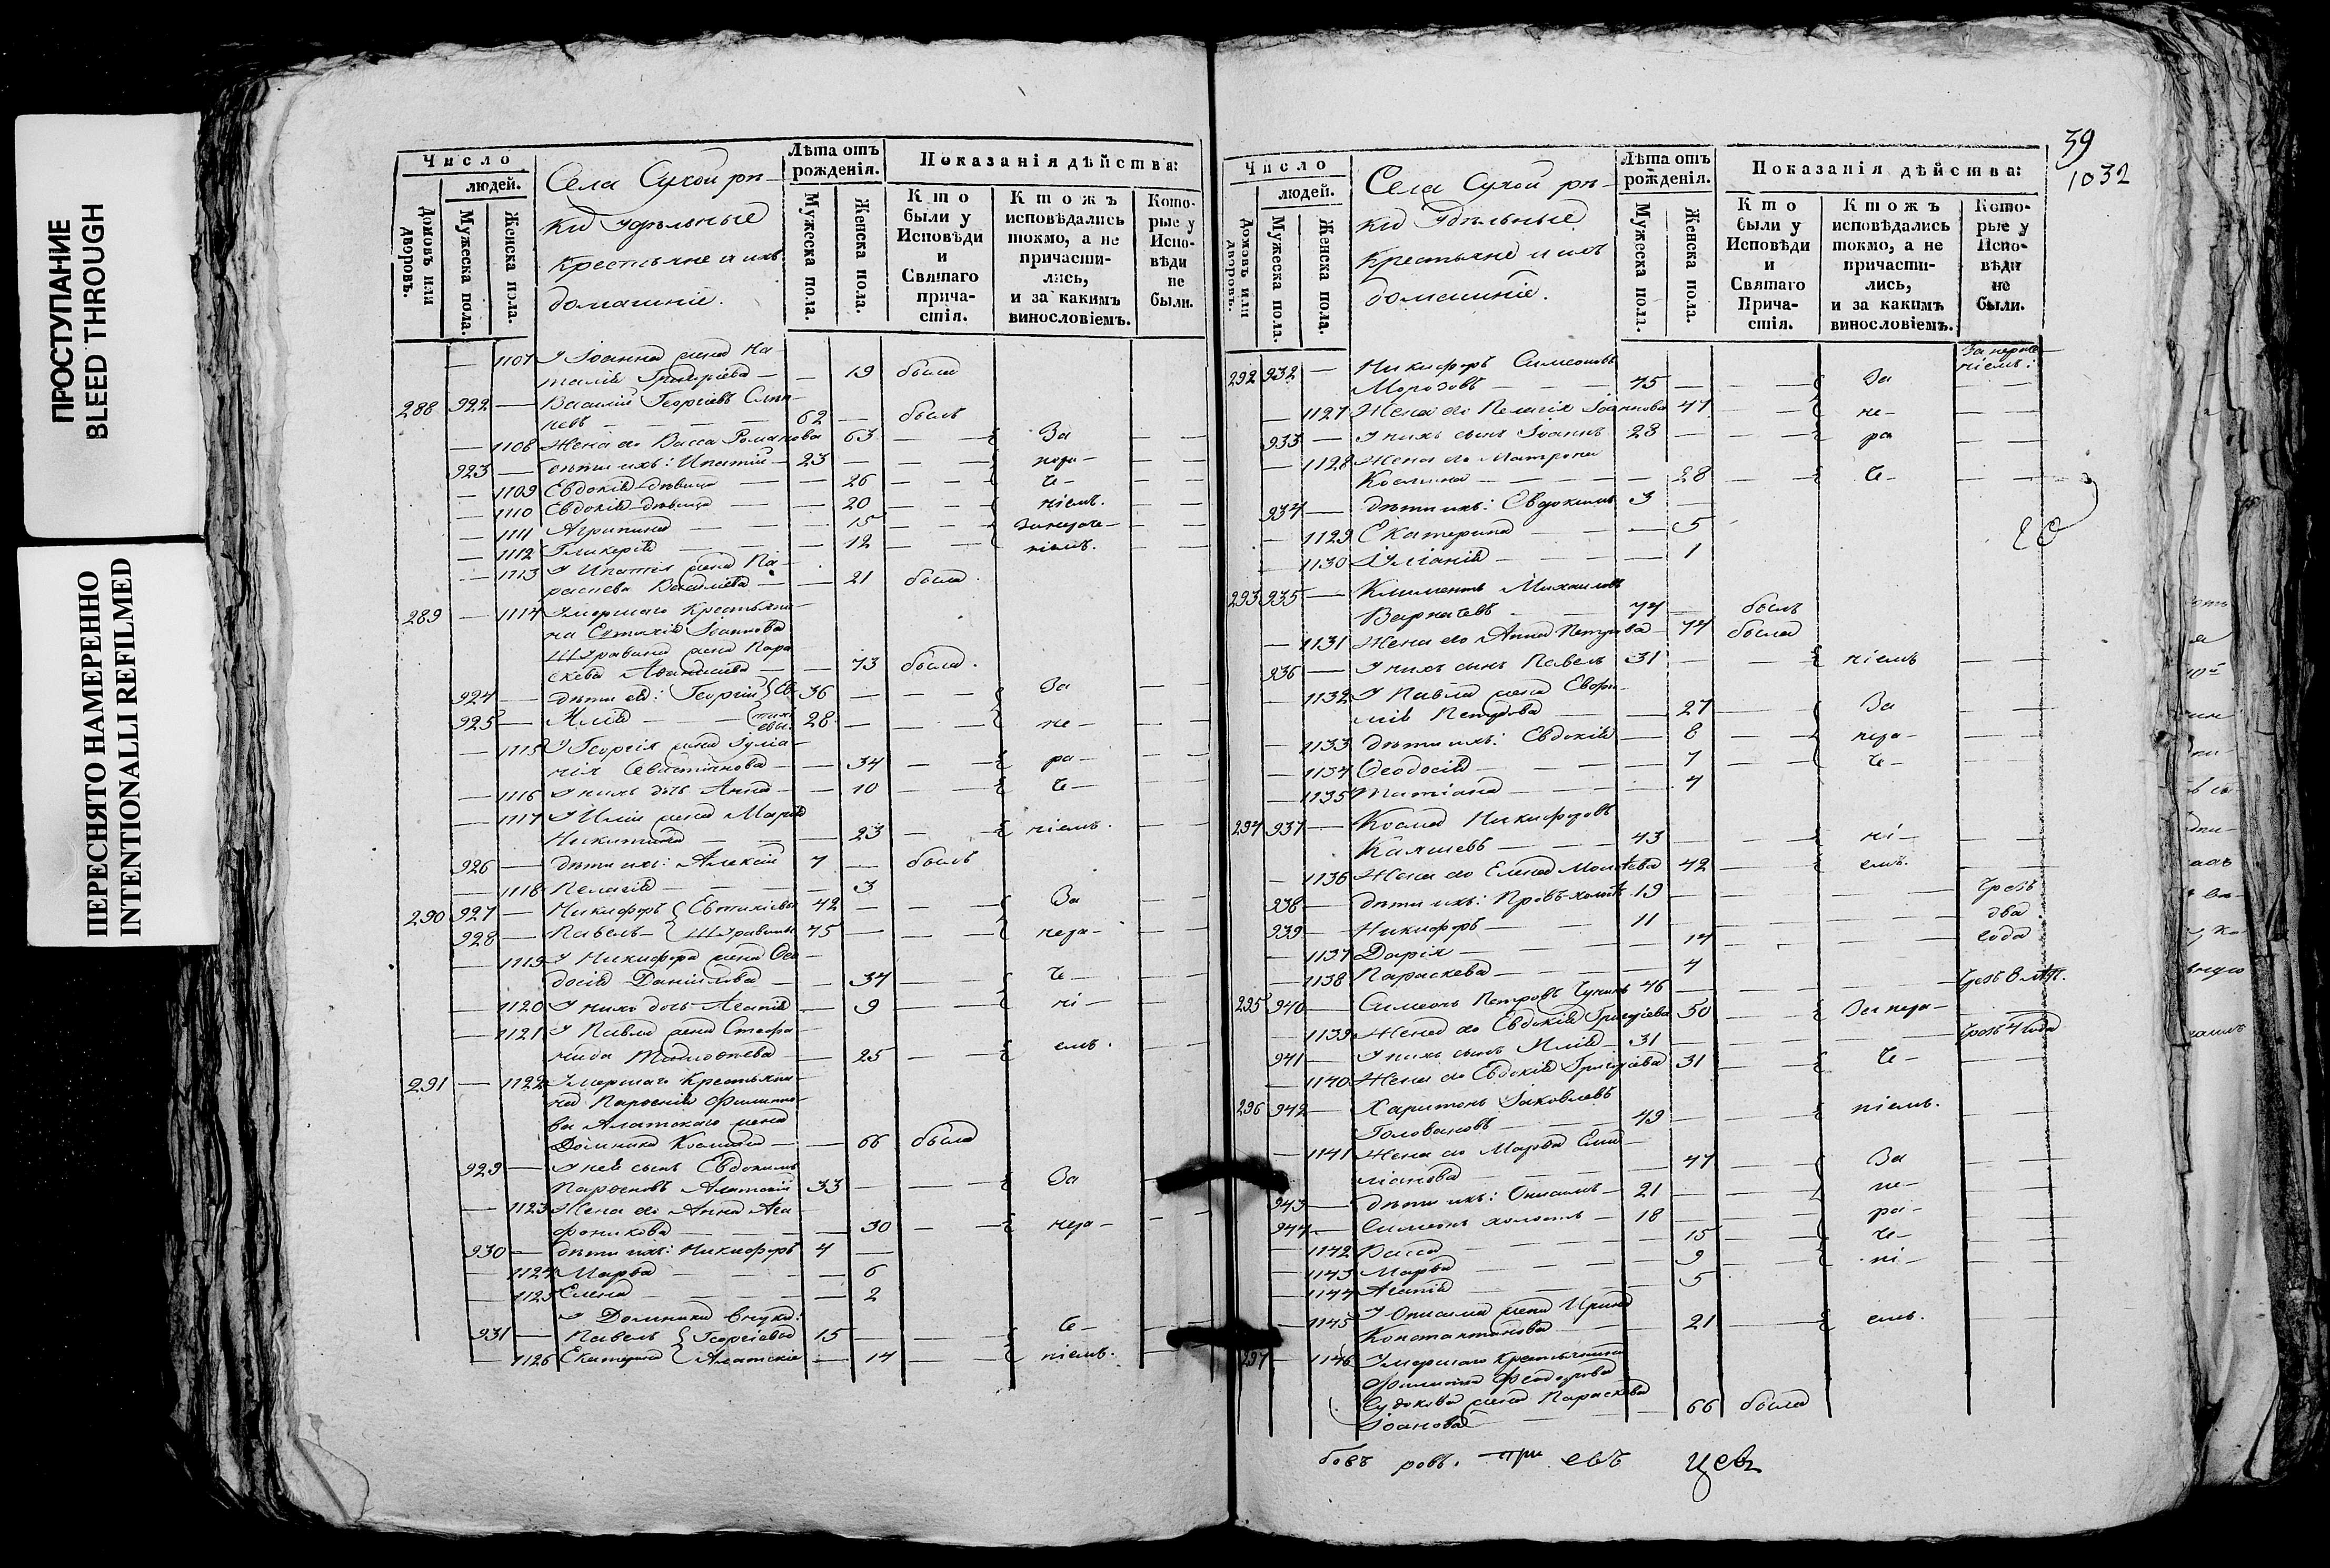 ПРОСТУПАНИЕ
BLEED THROUGH
ПЕРЕСНЯТО НАМЕРЕННО
INTENTIONALLI REFILMED
Число
людей.
Домовъ или дворовъ.
Мужеска пола.
Женска пола.
Села Сухой рѣ-
ки Удѣльные
крестьяне и ихъ
домашніе.
Лѣта отъ рожденія.
Мужеска пола.
Женска пола.
Показанія дѣйства:
Кто были у Исповѣди и Святаго причастія.
Ктожъ исповѣдались токмо, а не причастились, и за какимъ винословіемъ.
Которые у Исповѣди не были.
— 1107 У Іоанна жена На-
талія Григоріева — — 19 была
288 922 — Василій Георгіевъ
62 — былъ
— 1108 Жена его Васса Романова 63 — — За
923 — дѣти ихъ: Ипатій — 23 — — нера-
— 1109 Евдокія дѣвица — 26 — — че-
— 1110 Евдокія дѣвица — 20 — — ніемъ.
— 1111 Агрипина — 15 — — За нераче-
— 1112 Гликерія — 12 — — ніемъ.
— 1113 У Ипатія жена Па-
раскева Василіева — — 21 была
289 — 1114 Умершаго крестьяни-
на Евтихія Іоаннова
жена Пара-
скева — — 73 была.
924 — дѣти ея: Георгій 36 — — За
925 — Илія — 28 — — не-
— 1115 У Георгія жена Іуліа-
нія Севастіянова — — 34 — — ра-
— 1116 У нихъ дочь Анна — — 10 — — че-
— 1117 У Иліи жена Марія
Никитина — — 23 — — ніемъ.
926 — дѣти ихъ: Алексій 7 — былъ
— 1118 Пелагія — — 3
290 927 — Никифоръ Евтихіевы 42 — — За
928 — Павелъ — 45 — — нера-
— 1119 У Никифора жена Ѳео-
досія Даніилова — — 34 — — че-
— 1120 У нихъ дочь Агапія — 9 — — ні-
— 1121 У Павла жена Стефа-
нида — — 25 — — емъ.
291 — 1122 Умершаго крестьяни-
на Парѳенія Филиппо-
ва Алатскаго жена
Домника Космина — — 66 была
929 — У ней сынъ Евдокимъ
Парѳеновъ Алатскій 33 — — За
— 1123 Жена его Анна Ага-
фоникова — — 30 — — нера-
930 — дѣти ихъ: Никифоръ 4 —
— 1124 Марѳа — — 6
— 1125 Елена — — 2
У Домники внуки:
931 — Павелъ Георгіевы 15 — — че-
— 1126 Екатерина Алатскіе — 14 — — ніемъ.
39
1032
Число
людей.
Домовъ или дворовъ.
Мужеска пола.
Женска пола.
Села Сухой рѣ-
ки Удѣльные
крестьяне и ихъ
домашніе.
Лѣта отъ рожденія.
Мужеска пола.
Женска пола.
Показанія дѣйства:
Кто были у Исповѣди и Святаго Причастія.
Ктожъ исповѣдались токмо, а не причастились, и за какимъ винословіемъ.
Которые у Исповѣди не были.
292 932 — Никифоръ Симеоновъ
Морозовъ — — 45 — — За
— 1127 Жена его Пелагія Іоаннова 47 — — не-
933 — У нихъ сынъ Іоаннъ 28 — — ра
— 1128 Жена его Матрона
Космина — — 28 — — че-
934 — дѣти ихъ: Евдокимъ 3 —
— 1129 Екатерина — — 5
— 1130 Іуліанія — — 1
293 935 — Климентъ Михаиловъ
74 — былъ
— 1131 Жена его Анна Петрова — 74 была
936 — У нихъ сынъ Павелъ 31 — — ніемъ
— 1132 У Павла жена Евфи-
мія Петрова — — 27 — — За
— 1133 дѣти ихъ: Евдокія — 8 — — нера-
— 1134 Ѳеодосія — — 7 — — че-
— 1135 Татіана — — 4
294 937 — Косма Никифоровъ
43 — — ні-
— 1136 Жена его Елена 42 — — емъ.
938 — дѣти ихъ: Провъ холостъ 19 — — Чрезъ
939 — Никифоръ — 11 — — два
— 1137 Дарія — — 14 — — года
— 1138 Параскева — — 4
295 940 — Симеонъ Петровъ 46 — — Чрезъ 8 лѣт.
— 1139 Жена его Евдокія Григоріева 50 — — За нера-
941 — У нихъ сынъ Илія — 31 — — Чрезъ 4 года
— 1140 Жена его Евдокія Григоріева 31 — — че-
296 942 — Харитонъ Іаковлевъ
Головановъ — — 49 — — ніемъ.
— 1141 Жена его Марѳа Еми-
ліанова — — 47 — — За
943 — дѣти ихъ: Онисимъ — 21 — — не-
944 — Симеонъ холостъ — 18 — — ра-
— 1142 Васса — — 15 — — че-
— 1143 Марѳа — — 9 — — ні-
— 1144 Агапія — — 5
— 1145 У Онисима жена Ирина
Константинова — — 21 — — емъ.
297 — 1146 Умершаго крестьянина
Филиппа Ѳеодорова
жена Параскева
Іоанова — — 66 была